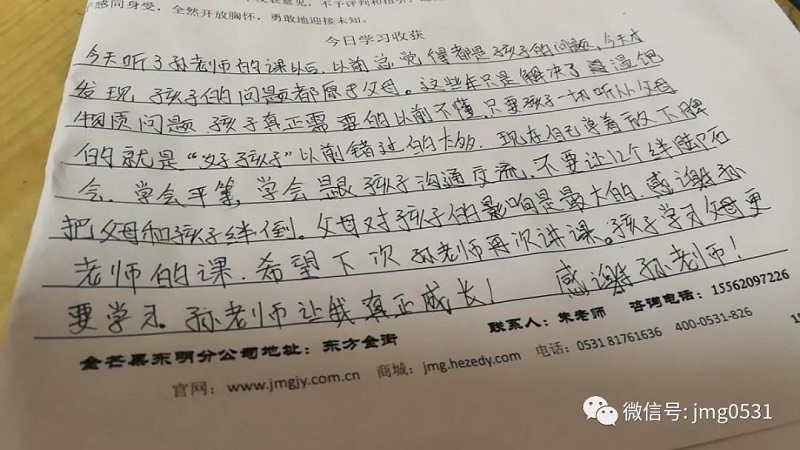 感同身受,全然开放胸怀,勇敢地迎接未知。
今日学习收获
今天听了孙老师的课以后,以前总觉得都是孩子的问题,今天才
发现,孩子的问题都原于父母。这些年只是解决了温饱
物质问题,孩子真正需要的以前不懂,只要孩子一切听从父母
的就是“好孩子”以前错过的太多,现在自己学着放下脾
会,学会平等,学会跟孩子沟通交流,不要让12个绊脚石
把父母和孩子绊倒。父母对孩子的影响是最大的,感谢孙
老师的课,希望下次孙老师再次讲课。孩子学习父母更
要学习。孙老师让我真正成长! 感谢孙老师!
金芒果东明分公司地址:东方金街 联系人:朱老师 咨询电话:15562097226
官网:www.jmgjy.com.cn 商城:jmg.hezedy.com 电话:0531 81761636 400-0531-826
微信号: jmg0531